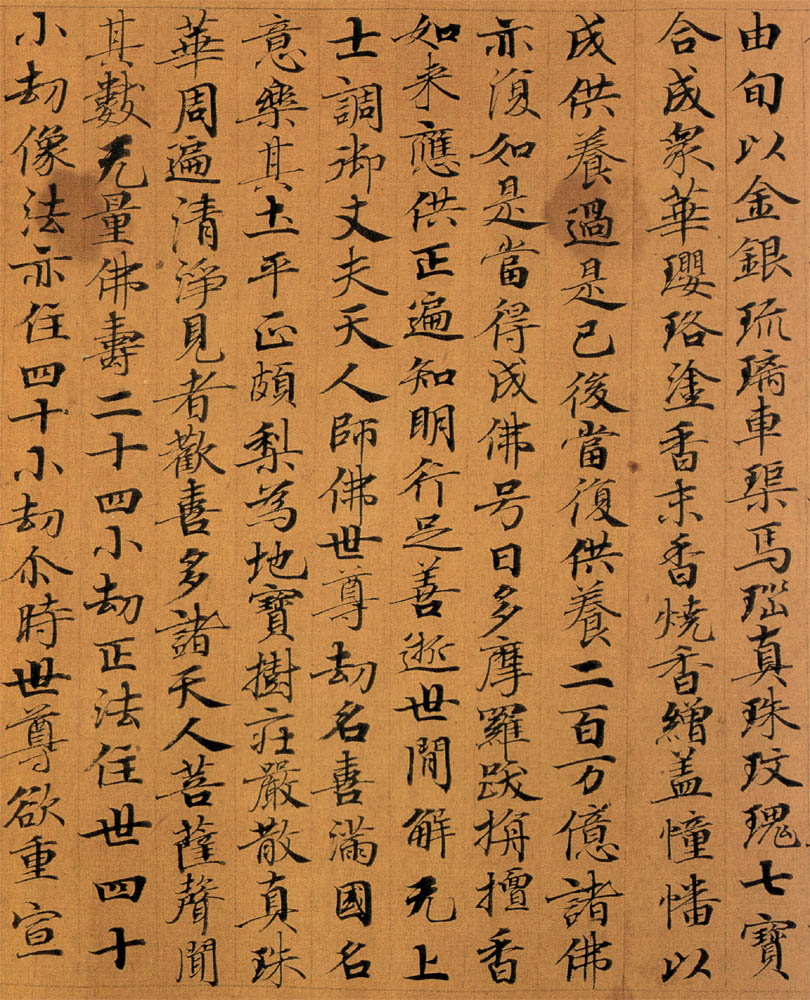 由旬以金銀琉璃車璖馬瑙真珠玟瑰七寶
合成眾華瓔珞塗香末香燒香繒盖幢幡以
成供養過是已後當復供養二百万億諸佛
亦復如是當得成佛号曰多摩羅跋栴檀香
如来應供正遍知明行足善逝世間解无上
士調御丈夫天人師佛世尊劫名喜滿國名
意樂其土平正頗梨為地寶樹莊嚴散真珠
華周遍清淨見者歡喜多諸天人菩薩聲聞
其數无量佛壽二十四小劫正法住世四十
小劫像法亦住四十小劫尒時世尊欲重宣